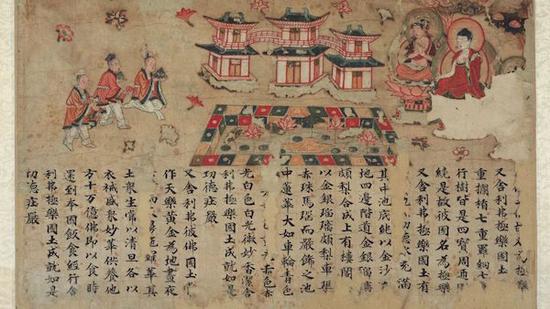 極樂
又舍利弗極樂國土
重欄楯七重羅網七
行樹皆是四寶周迊
繞是故彼國名為極樂
又舍利弗極樂國土有
功德 充滿
其中池底純以金沙
地四邊階道金銀瑠璃
頗梨合成上有樓閣
以金銀瑠璃頗梨車璩
赤珠馬瑙而嚴飾之池
中蓮華大如車輪青色
赤色赤
光白色白光微妙香潔舍
利弗極樂國土成就如是
功德莊嚴
又舍利弗彼佛國土
作天樂黃金為地晝夜
而雨 華其
土眾生常以清旦各以
衣裓盛眾妙華供養他
方十万億佛即以食時
還到本國飯食經行舍
利弗極樂國土成就如是
功德莊嚴